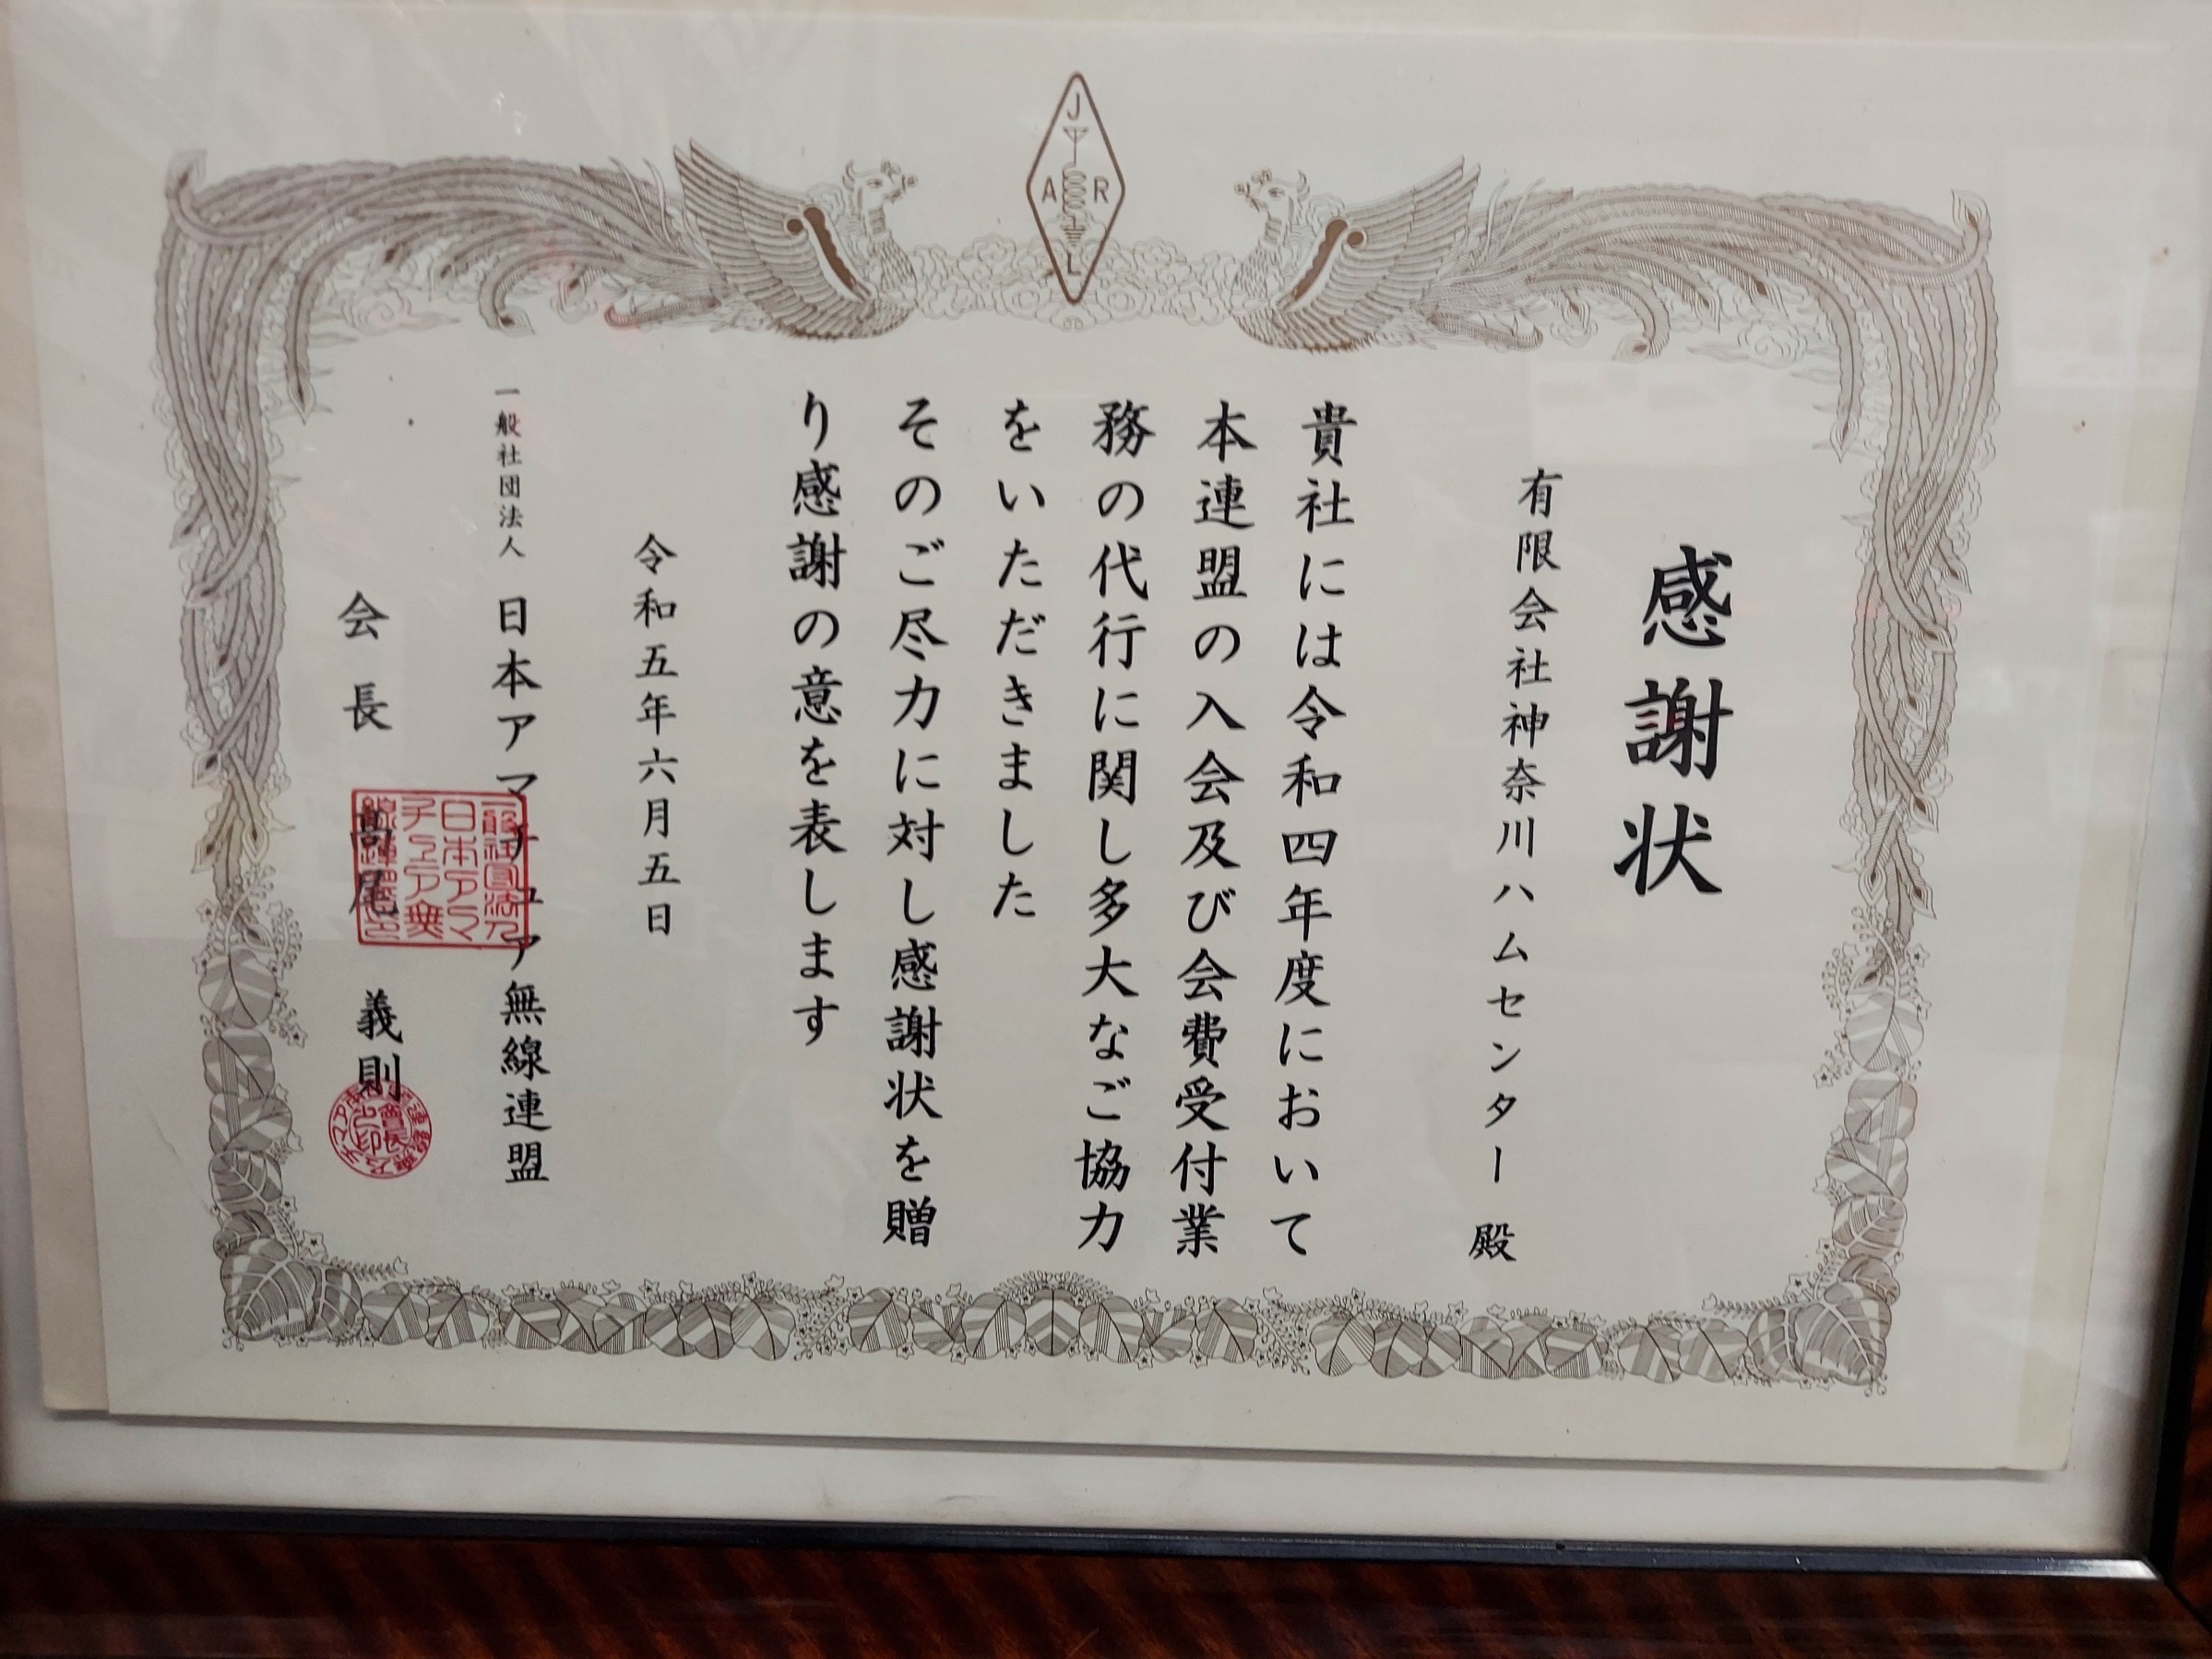 J
A R
L
感謝状
有限会社神奈川ハムセンター 殿
貴社には令和四年度において
本連盟の入会及び会費受付業
務の代行に関し多大なご協力
をいただきました
そのご尽力に対し感謝状を贈
り感謝の意を表します
令和五年六月五日
一般社団法人 日本アマチュア無線連盟
会長 髙尾 義則